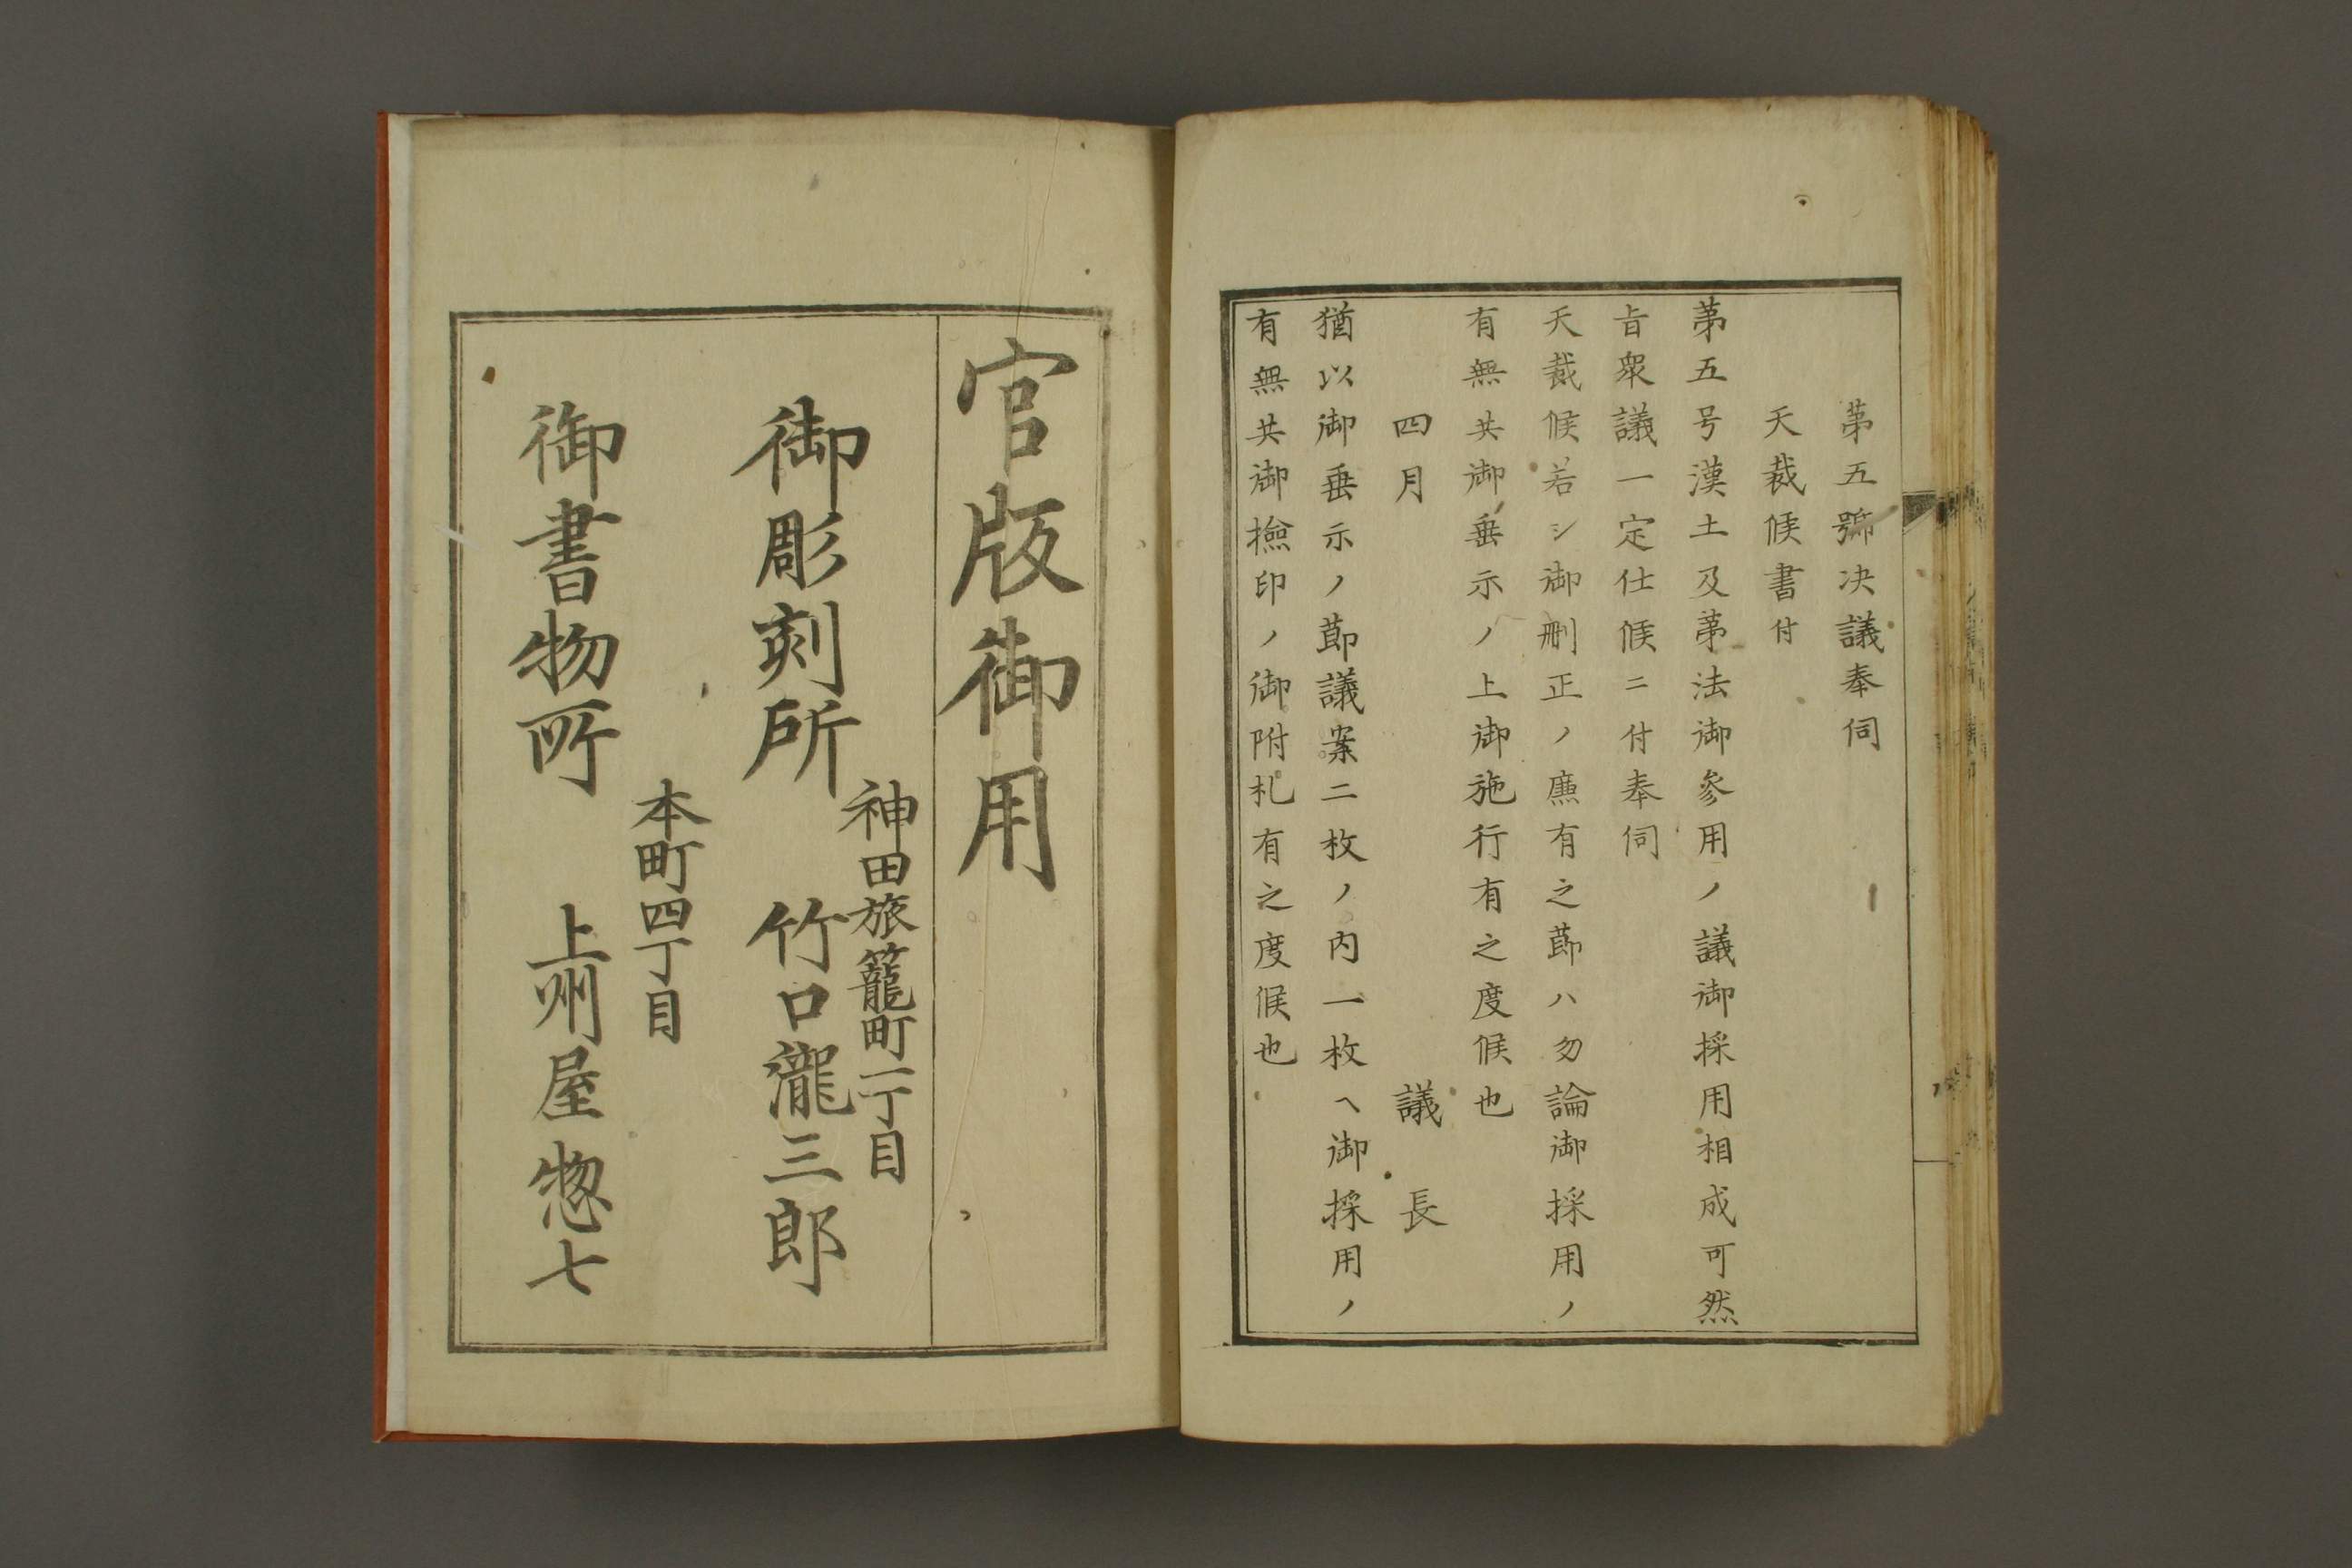 第五號决議奉伺
天裁候書付
第五号漢土及第法御參用ノ議御採用相成可然
旨衆議一定仕候ニ付奉伺
天裁候若シ御刪正ノ廉有之莭ハ勿論御採用ノ
有無共御垂示ノ上御施行有之度候也
四月　議長
猶以御垂示ノ莭議案二枚ノ内一枚ヘ御採用ノ
有無共御撿印ノ御附札有之度候也
官版御用
神田旅籠町一丁目
御彫刻所　竹口瀧三郎
本町四丁目
御書物所　上州屋惣七